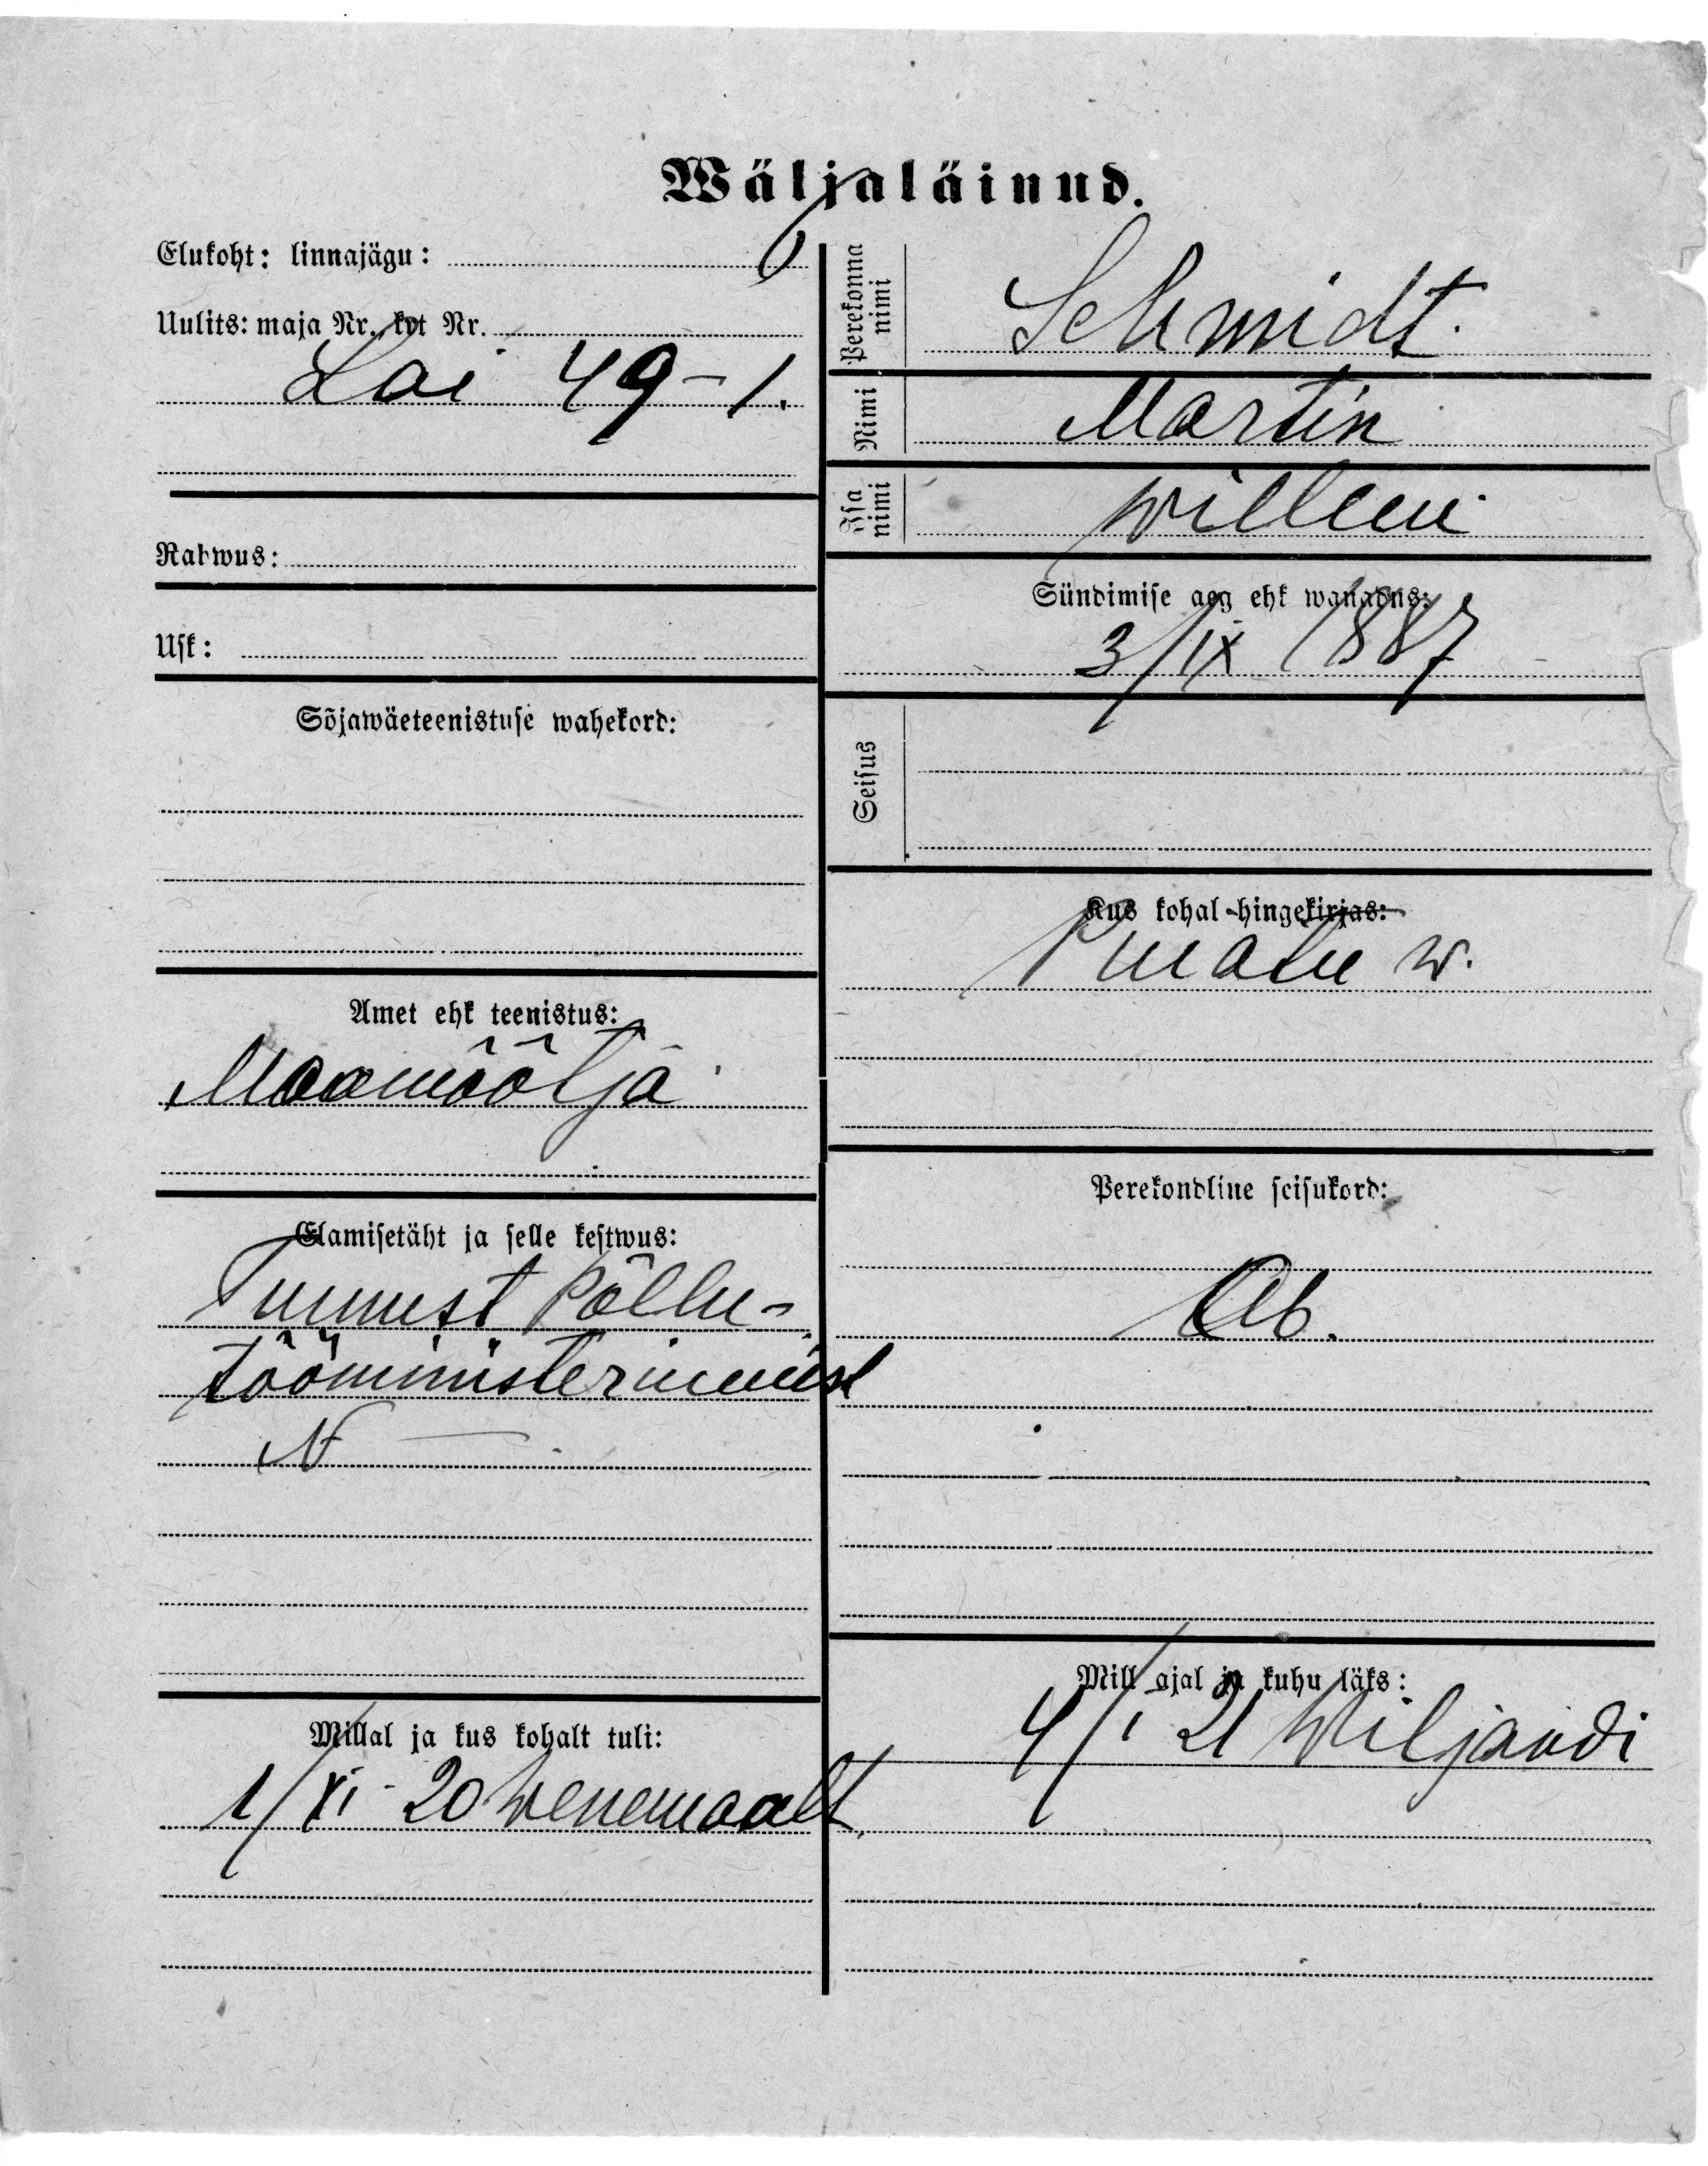 Wäljaläinud.
Elukoht: linnajägu:
Uulits: maja Nr. krt Nr.
Lai 49-1.
Rahwus:
Usk:
Sõjawäeteenistuse wahekord:
Amet ehk teenistus:
Maamõõtja
Elamisetäht ja selle kestwus:
Tunnist Põllu-
tööministeriumist
N —
Millal ja kus kohalt tuli:
1/XI - 20 Wenemaalt.
Perekonna nimi
Schmidt.
Nimi
Martin
Isa nimi
Willem
Sündimise aeg ehk wanadus:
3/IX 1887
Seisus
Kus kohal hingekirjas:
w.
Perekondline seisukord:
Ab.
Mill ajal ja kuhu läks:
4/I 21 Wiljandi